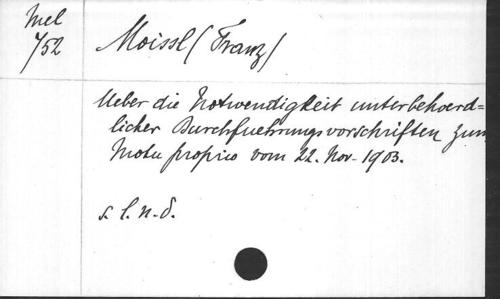 Mel
752
Moissl (Franz)
Ueber die Notwendigkeit unterbehoerd=
licher Durchfuehrungsvorschriften zum
Motu proprio vom 22. Nov. 1903.
s. l. n. d.